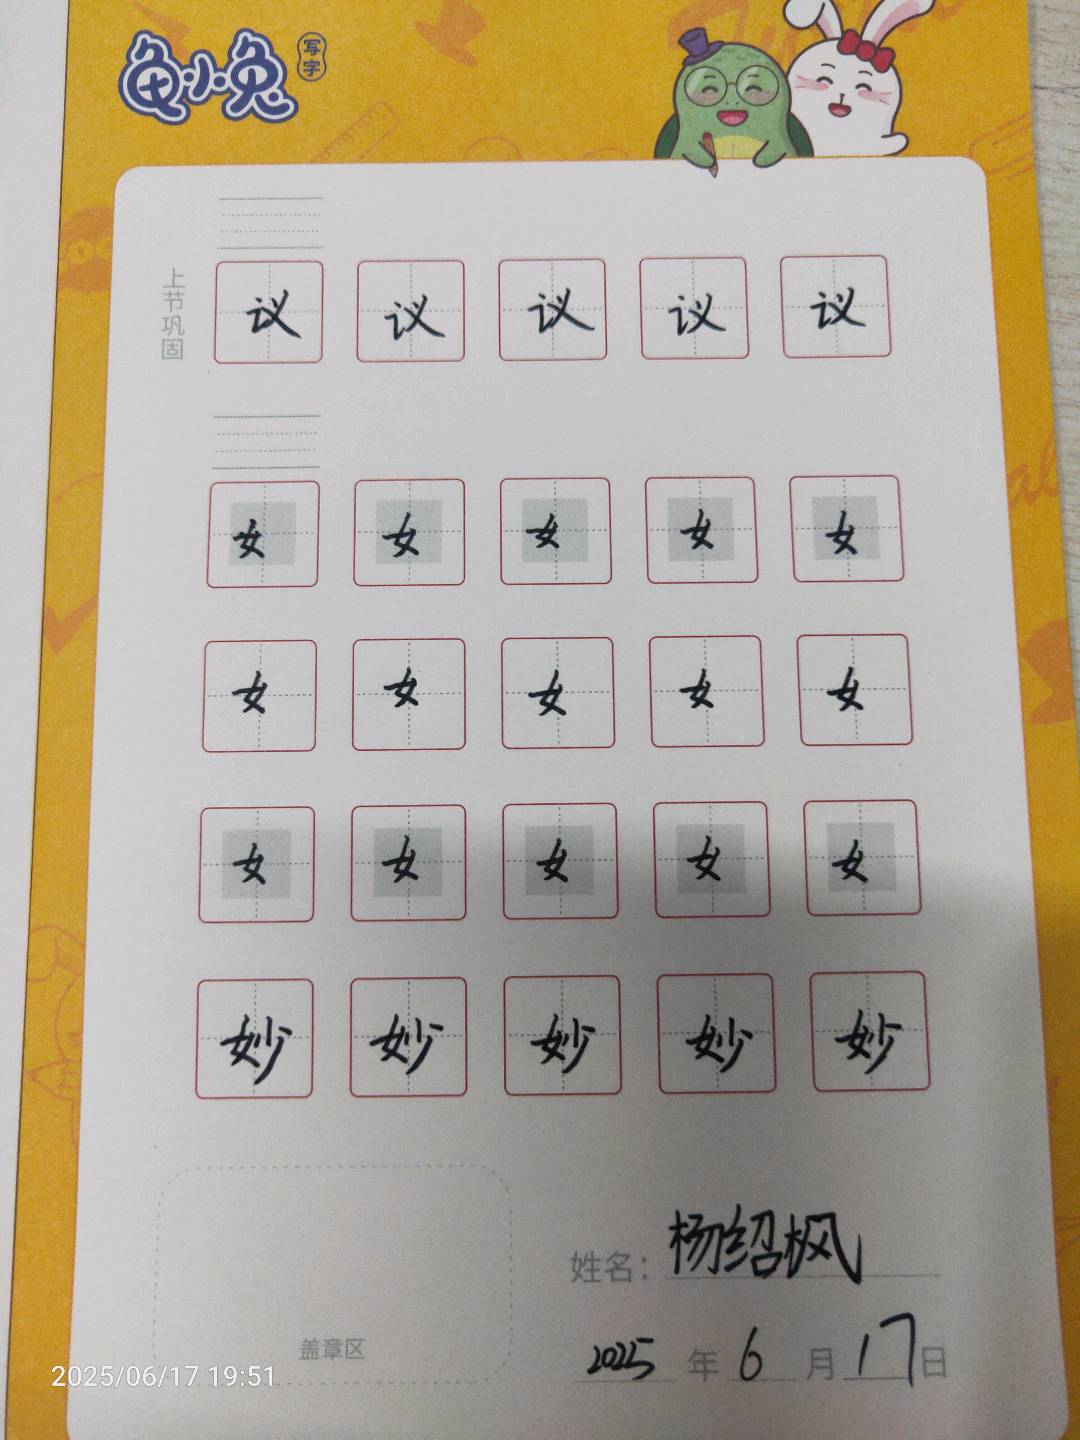 龟小兔 写字
上节巩固
议 议 议 议 议
女 女 女 女 女
女 女 女 女 女
女 女 女 女 女
妙 妙 妙 妙 妙
姓名：杨绍枫
盖章区
2025 年 6 月 17 日
2025/06/17 19:51